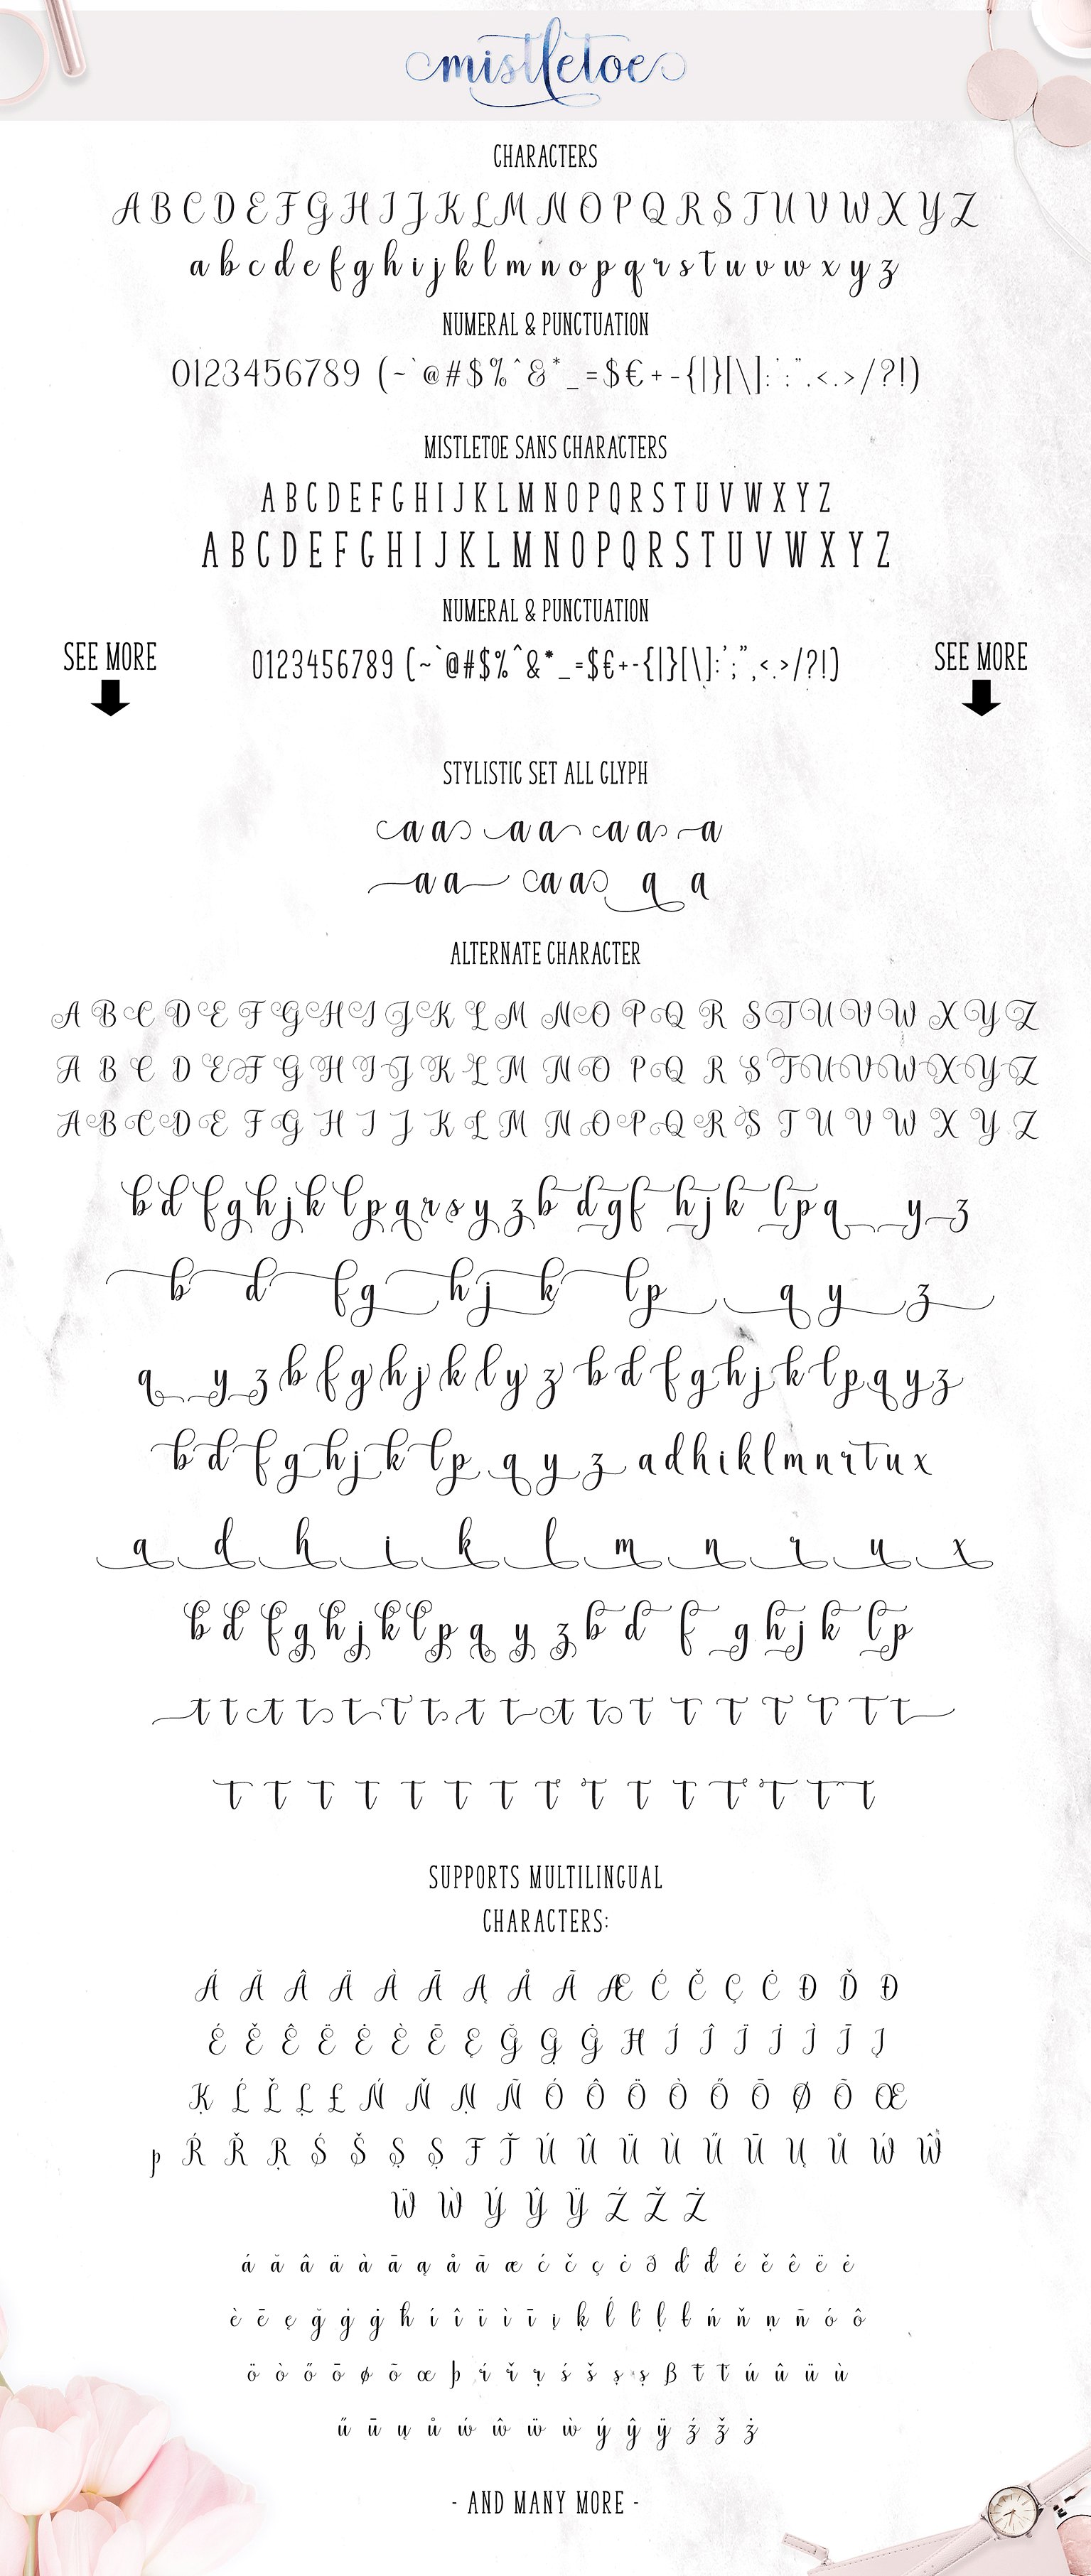 mistletoe
CHARACTERS
A B C D E F G H I J K L M N O P Q R S T U V W X Y Z
a b c d e f g h i j k l m n o p q r s t u v w x y z
NUMERAL & PUNCTUATION
0123456789 (~`@#$%^&*_=$€+-{|}[\]:';",<.>/?!)
MISTLETOE SANS CHARACTERS
A B C D E F G H I J K L M N O P Q R S T U V W X Y Z
A B C D E F G H I J K L M N O P Q R S T U V W X Y Z
NUMERAL & PUNCTUATION
SEE MORE
0123456789 (~`@#$%^&*_=$€+-{|}[\]:';",<.>/?!)
SEE MORE
STYLISTIC SET ALL GLYPH
a a a a a a a
a a a a a a
ALTERNATE CHARACTER
A B C D E F G H I J K L M N O P Q R S T U V W X Y Z
A B C D E F G H I J K L M N O P Q R S T U V W X Y Z
A B C D E F G H I J K L M N O P Q R S T U V W X Y Z
b d f g h j k l p q r s y z b d g f h j k l p q y z
b d f g h j k l p q y z
q y z b f g h j k l y z b d f g h j k l p q y z
b d f g h j k l p q y z a d h i k l m n r t u x
a d h i k l m n r u x
b d f g h j k l p q y z b d f g h j k l p
t t t t t t t t t t t t t t t t t t
t t t t t t t t t t t t t t t
SUPPORTS MULTILINGUAL
CHARACTERS:
Á Ă Â Ä À Ā Ą Å Ã Æ Ć Č Ç Ċ Ð Ď Đ
É Ě Ê Ë Ė È Ē Ę Ğ Ģ Ġ Ħ Í Î Ï İ Ì Ī Į
Ķ Ĺ Ľ Ļ Ł Ń Ň Ņ Ñ Ó Ô Ö Ò Ő Ō Ø Õ Œ
Þ Ŕ Ř Ŗ Ś Š Ş Ș Ŧ Ť Ú Û Ü Ù Ű Ū Ų Ů Ẃ Ŵ
Ẅ Ẁ Ý Ŷ Ÿ Ź Ž Ż
á ă â ä à ā ą å ã æ ć č ç ċ ð ď đ é ě ê ë ė
è ē ę ğ ģ ġ ħ í î ï ì ī į ķ ĺ ľ ļ ł ń ň ņ ñ ó ô
ö ò ő ō ø õ œ þ ŕ ř ŗ ś š ş ș ß ŧ ť ú û ü ù
ű ū ų ů ẃ ŵ ẅ ẁ ý ŷ ÿ ź ž ż
- AND MANY MORE -